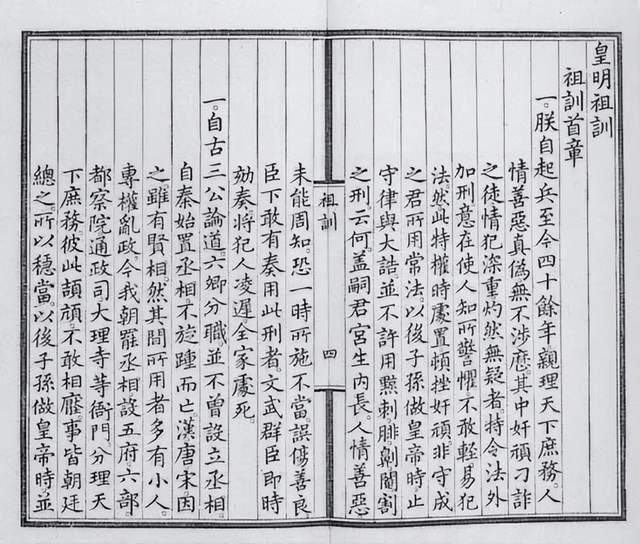 皇明祖訓
祖訓首章
一。朕自起兵至今四十餘年。親理天下庶務。人
情善惡真偽。無不涉歷。其中奸頑刁詐
之徒。情犯深重。灼然無疑者。特令法外
加刑。意在使人知所警懼。不敢輕易犯
法。然此特權時處置。頓挫奸頑。非守成
之君所用常法。以後子孫做皇帝時。止
守律與大誥。並不許用黥刺腓劓閹割
之刑。云何。蓋嗣君宮生內長。人情善惡
祖訓
四
未能周知。恐一時所施不當。誤傷善良。
臣下敢有奏用此刑者。文武群臣即時
劾奏。將犯人凌遲。全家處死。
一。自古三公論道。六卿分職。並不曾設立丞相。
自秦始置丞相。不旋踵而亡。漢唐宋因
之。雖有賢相。然其間所用者多有小人。
專權亂政。今我朝罷丞相。設五府。六部。
都察院。通政司。大理寺等衙門。分理天
下庶務。彼此頡頏。不敢相壓。事皆朝廷
總之。所以穩當。以後子孫做皇帝時。並